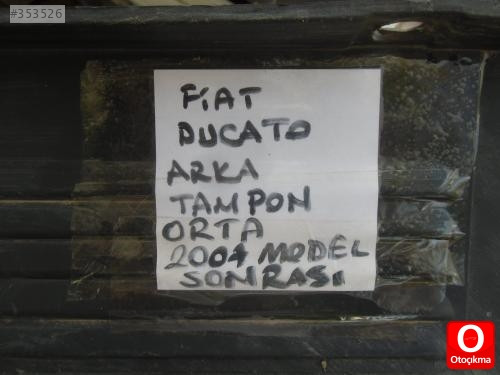 #353526
FiAT
DUCATO
ARKA
TAMPON
ORTA
2004 MODEL
SONRASI
O
Otoçıkma